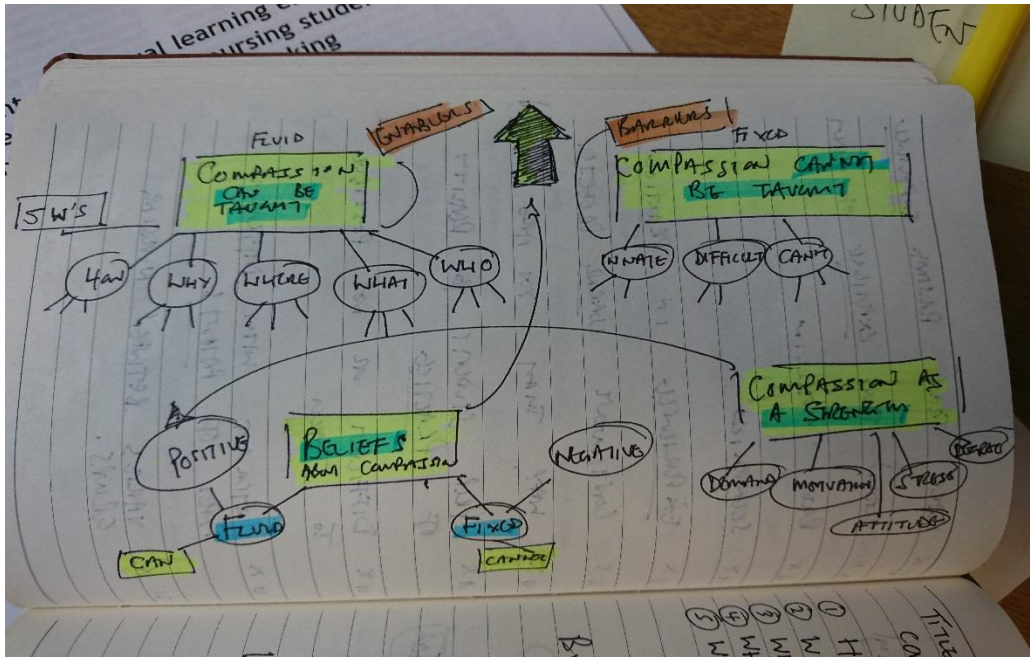 ual learning
nursing stude
king
STUDEN
ENABLERS
BARRIERS
FLUID
FIXED
COMPASSION
CAN BE
TAUGHT
COMPASSION CANNOT
BE TAUGHT
5 W'S
HOW
WHY
WHERE
WHAT
WHO
INNATE
DIFFICULT
CAN'T
COMPASSION AS
A STRENGTH
POSITIVE
BELIEFS
ABOUT COMPASSION
NEGATIVE
DEMAND
MOTIVATION
STRESS
ATTITUDE
FLUID
FIXED
CAN
CANNOT
TITLE
① H
② W
③ W
④ WH
⑤ W